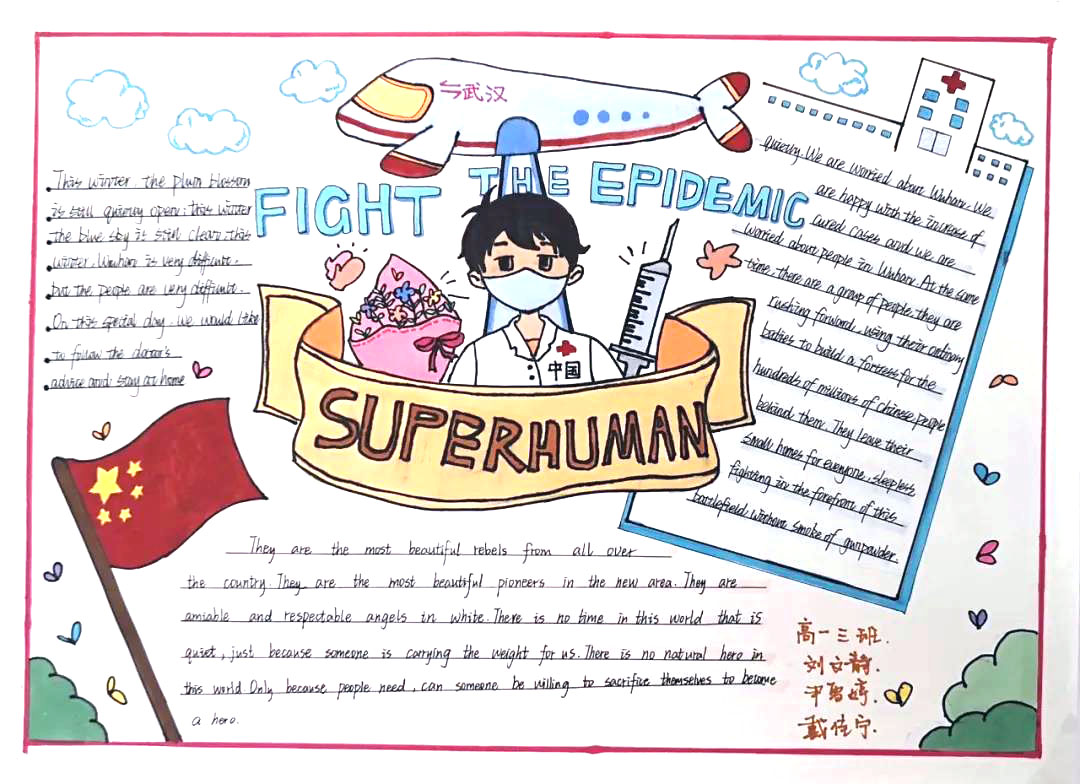 ⇆武汉
FIGHT THE EPIDEMIC
This winter, the plum blossom
is still quietly open; this winter
the blue sky is still clear, this
winter. Wuhan is very difficult.
but the people are very difficult.
On this special day, we would like
to follow the doctor's
advice and stay at home
中国
SUPERHUMAN
quietly. We are worried about Wuhan. We
are happy with the increase of
cured cases and we are
worried about people in Wuhan. At the same
time, there are a group of people, they are
rushing forward, using their ordinary
bodies to build a fortress for the
hundreds of millions of chinese people
behind them. They leave their
small homes for everyone, sleepless
fighting in the forefront of this
battlefield without smoke of gunpowder.
They are the most beautiful rebels from all over
the country. They are the most beautiful pioneers in the new area. They are
amiable and respectable angels in white. There is no time in this world that is
quiet, just because someone is carrying the weight for us. There is no natural hero in
this world Only because people need, can someone be willing to sacrifice themselves to become
a hero.
高一三班.
刘文静.
尹智婷.
戴佳宁.